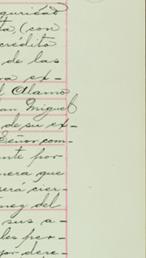 guridad
ta, (con
crédito
de las
va ex-
l Alamo
an Miguel
de su ex-
Señor com-
nte por
nera que
será cier-
nez del
sus a-
les per-
yor dere-